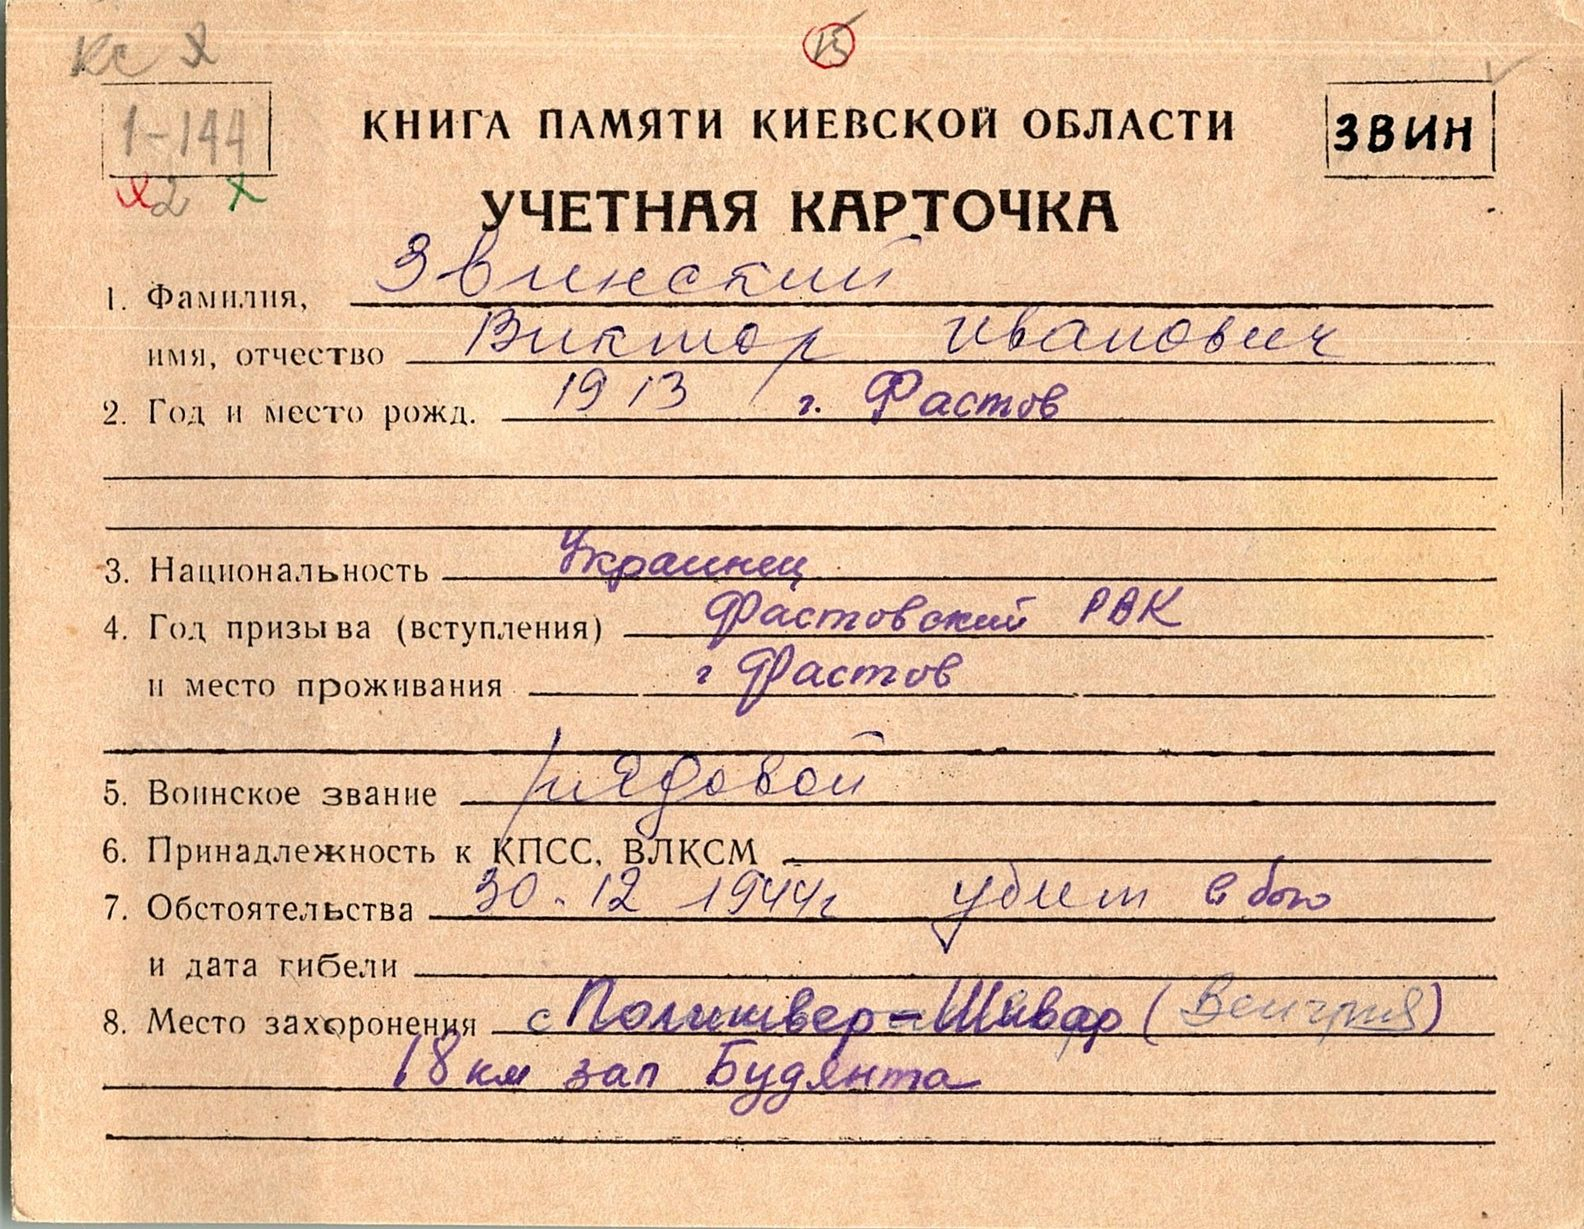 КС
15
1-144
КНИГА ПАМЯТИ КИЕВСКОЙ ОБЛАСТИ
ЗВИН
2
УЧЕТНАЯ КАРТОЧКА
1. Фамилия, Звинский
имя, отчество Виктор Иванович
2. Год и место рожд. 1913 г. Фастов
3. Национальность Украинец
4. Год призыва (вступления) Фастовский РВК
и место проживания г Фастов
5. Воинское звание рядовой
6. Принадлежность к КПСС, ВЛКСМ
7. Обстоятельства 30.12 1944г убит в бою
и дата гибели
8. Место захоронения с (Венгрия)
18 км зап